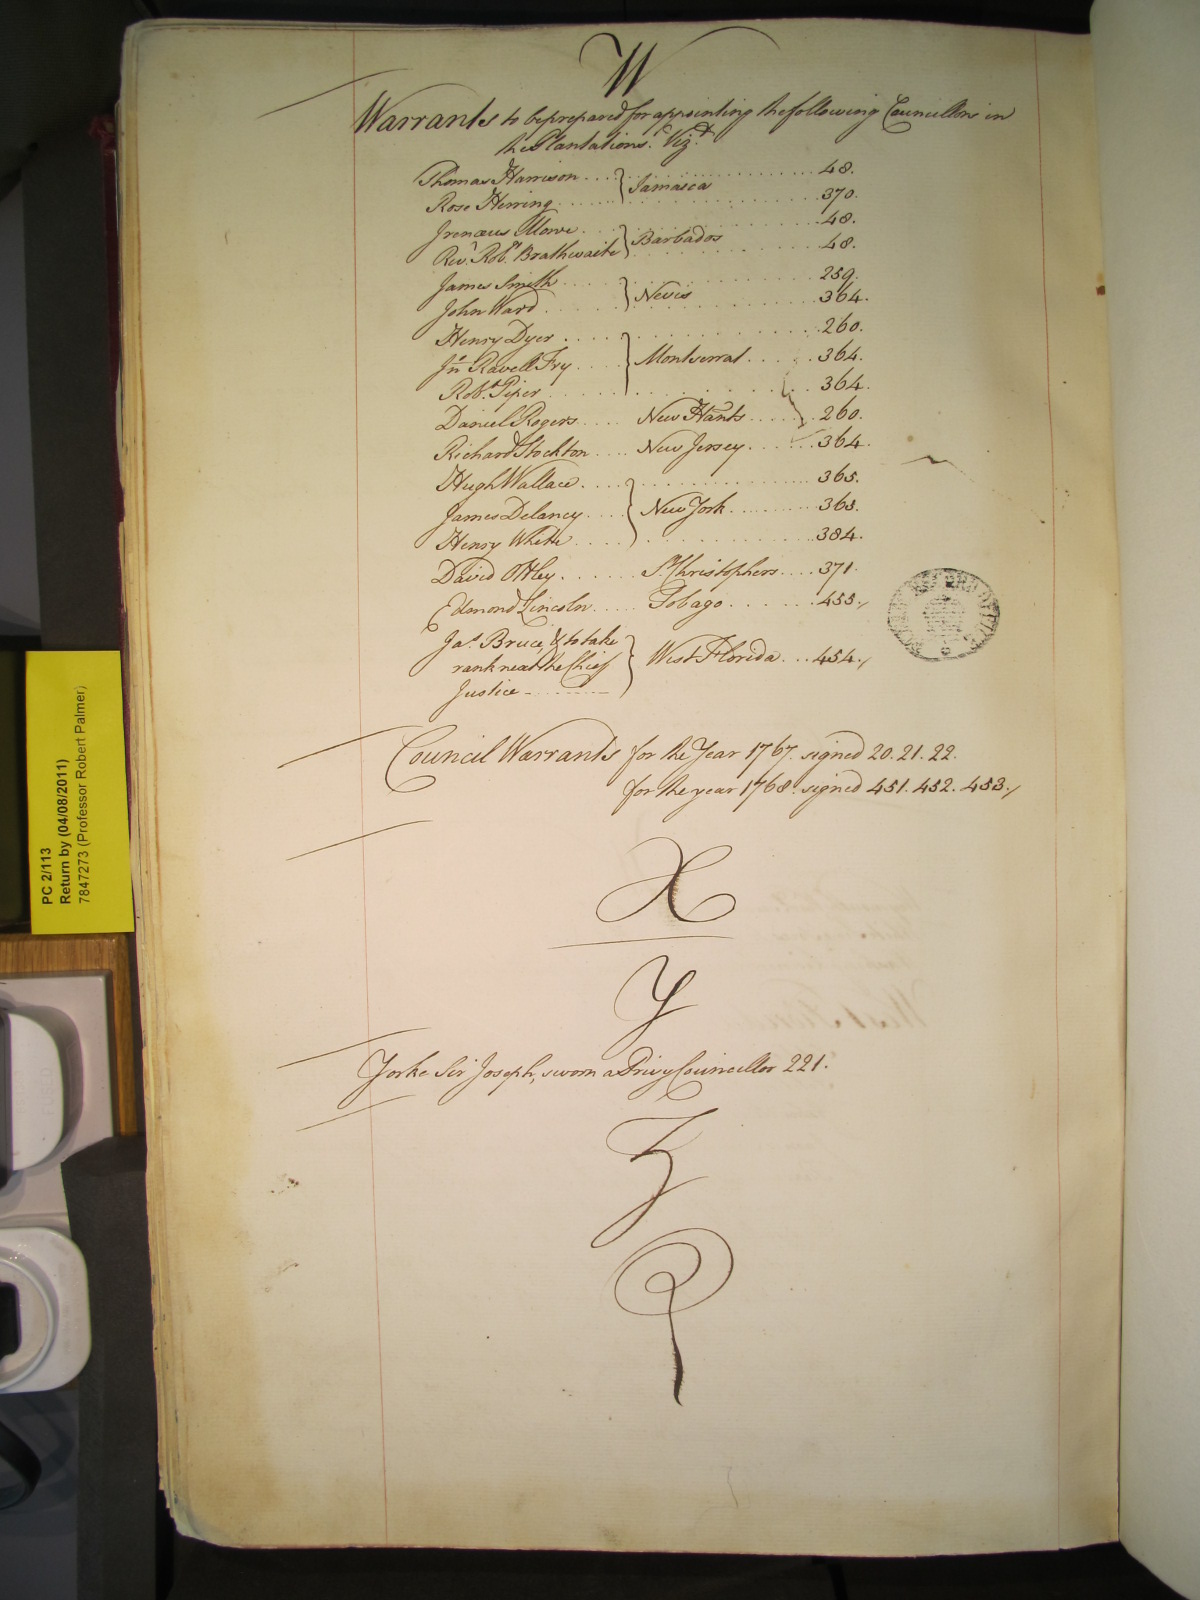 W
Warrants to be prepared for appointing the following Councillors in
the Plantations. Vizt.
Thomas Harrison .... } Jamaica .......... 48.
Rose Herring ....... 370.
Irenæus Moore ...... } Barbados ....... 48.
Revd. Robt. Brathwaite ....... 48.
James Smith ....... } Nevis ....... 259.
John Ward ....... 364.
Henry Dyer ....... 260.
Jno. Ravell Fry .... } Montserrat ..... 364.
Robt. Piper ....... 364.
Daniel Rogers .... New Hants ..... 260.
Richard Stockton .... New Jersey ..... 364.
Hugh Wallace ....... 365.
James Delancy .... } New York ........ 365.
Henry White ....... 384.
David Ottley ...... St. Christophers .... 371.
Edmond Lincoln ..... Tobago ....... 455.
Jas. Bruce, & to take
rank next the Chief } West Florida ... 454.
Justice
Council Warrants for the Year 1767. signed 20. 21. 22.
for the year 1768. signed 451. 452. 453.
X
Y
Yorke Sir Joseph, sworn a Privy Councillor 221.
Z
PC 2/113
Return by (04/08/2011)
7847273 (Professor Robert Palmer)